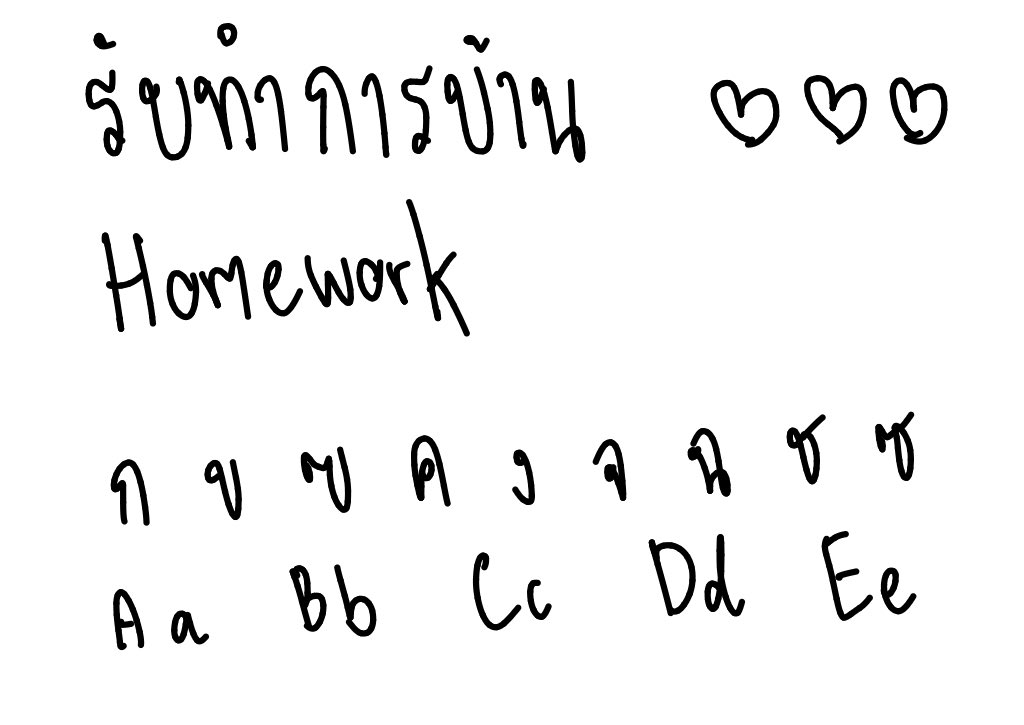 รับทำการบ้าน ♡ ♡ ♡
Homework
ก ข ฃ ค ง จ ฉ ช ซ
Aa Bb Cc Dd Ee